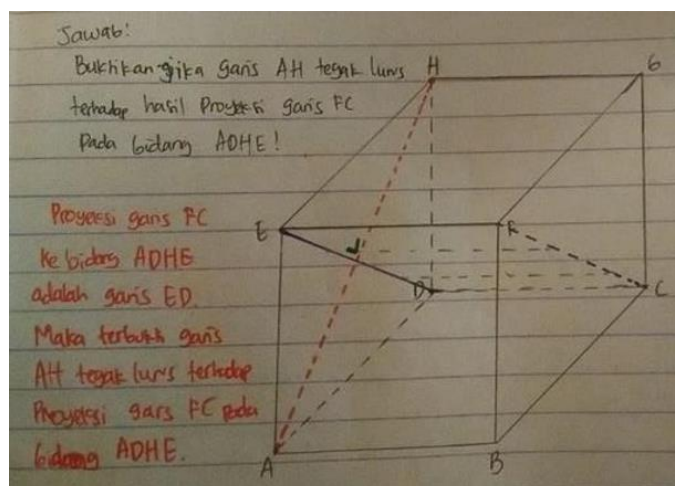 Jawab:
Buktikan jika garis AH tegak lurus
terhadap hasil Proyeksi garis FC
Pada bidang ADHE!
Proyeksi garis FC
ke bidang ADHE
adalah garis ED.
Maka terbukti garis
AH tegak lurus terhadap
Proyeksi garis FC pada
bidang ADHE.
H
G
E
F
D
C
A
B